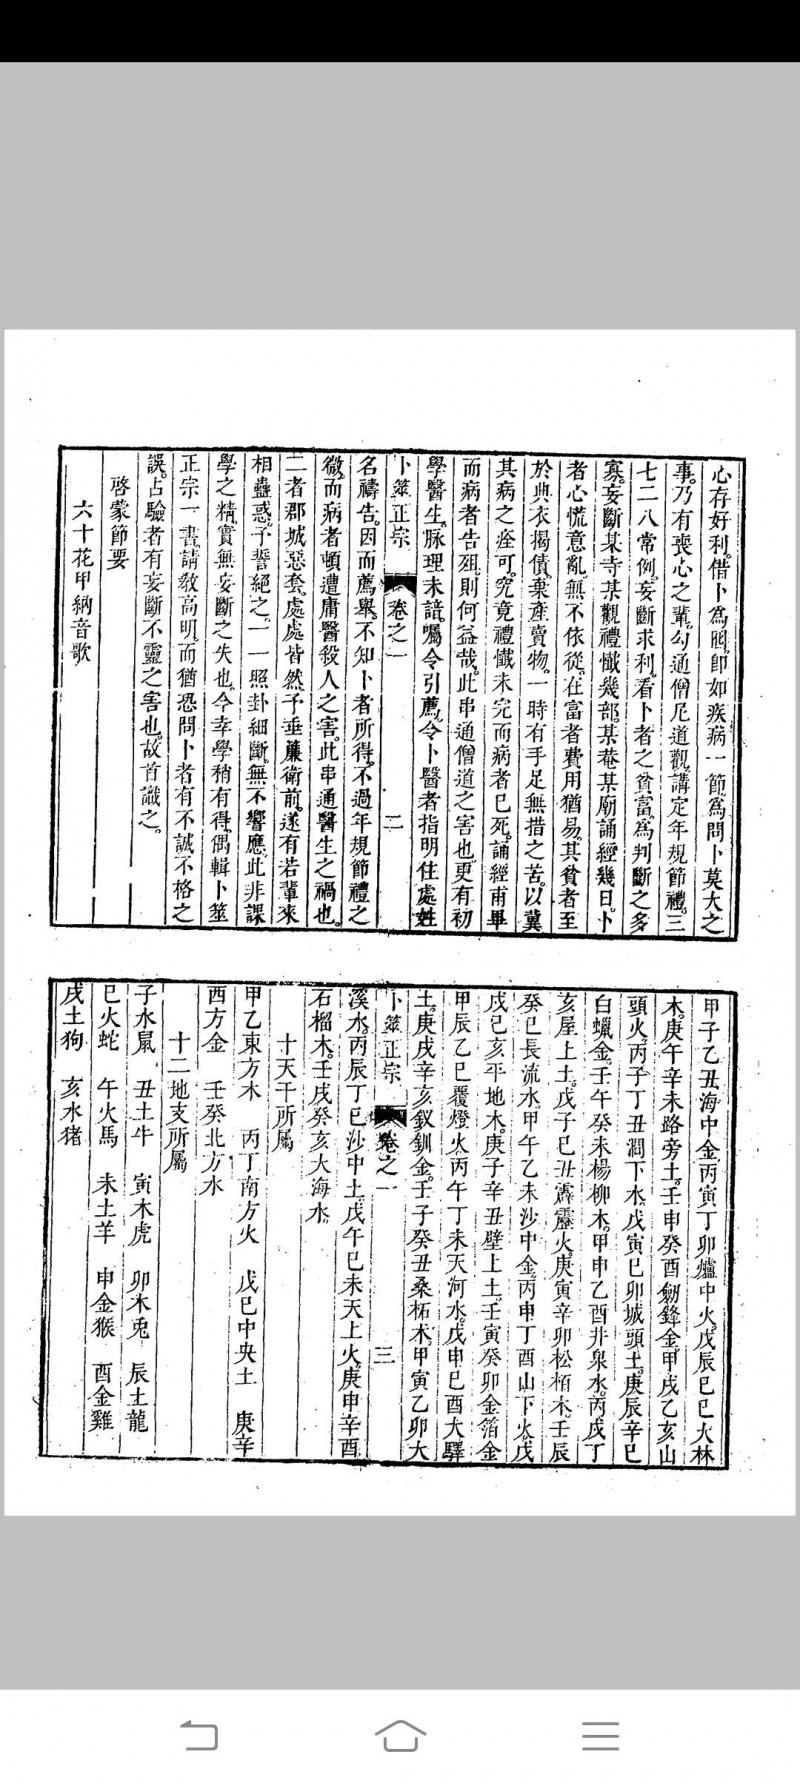 心存好利。借卜爲囮。即如疾病一節。爲問卜莫大之
事。乃有喪心之輩。勾通僧尼道觀。講定年規節禮。三
七二八常例。妄斷求利。看卜者之貧富。爲判斷之多
寡。妄斷某寺某觀禮懺幾部。某菴某廟誦經幾日。卜
者心慌意亂。無不依從。在富者費用猶易。其貧者至
於典衣揭債。棄產賣物。一時有手足無措之苦。以冀
其病之痊可。究竟禮懺未完而病者已死。誦經甫畢
而病者告殂。則何益哉。此串通僧道之害也。更有初
學醫生。脉理未諳。囑令引薦。令卜醫者指明住處姓
卜筮正宗 卷之一 二
名禱告。因而薦舉。不知卜者所得。不過年規節禮之
微。而病者頓遭庸醫殺人之害。此串通醫生之禍也。
二者郡城惡套。處處皆然。予垂簾衛前。遂有若輩來
相蠱惑。予誓絕之。一一照卦細斷。無不響應。此非課
學之精。實無妄斷之失也。今幸學稍有得。偶輯卜筮
正宗一書。請敎高明。而猶恐問卜者有不誠不格之
誤。占驗者有妄斷不靈之害也。故首識之。
啓蒙節要
六十花甲納音歌
甲子乙丑海中金。丙寅丁卯爐中火。戊辰己巳大林
木。庚午辛未路旁土。壬申癸酉劒鋒金。甲戌乙亥山
頭火。丙子丁丑澗下水。戊寅己卯城頭土。庚辰辛巳
白蠟金。壬午癸未楊柳木。甲申乙酉井泉水。丙戌丁
亥屋上土。戊子己丑霹靂火。庚寅辛卯松栢木。壬辰
癸巳長流水。甲午乙未沙中金。丙申丁酉山下火。戊
戌己亥平地木。庚子辛丑壁上土。壬寅癸卯金箔金
甲辰乙巳覆燈火。丙午丁未天河水。戊申己酉大驛
土。庚戌辛亥釵釧金。壬子癸丑桑柘木。甲寅乙卯大
卜筮正宗 卷之一 三
溪水。丙辰丁巳沙中土。戊午己未天上火。庚申辛酉
石榴木。壬戌癸亥大海水。
十天干所屬
甲乙東方木 丙丁南方火 戊己中央土 庚辛
西方金 壬癸北方水
十二地支所屬
子水鼠 丑土牛 寅木虎 卯木兎 辰土龍
巳火蛇 午火馬 未土羊 申金猴 酉金雞
戌土狗 亥水猪